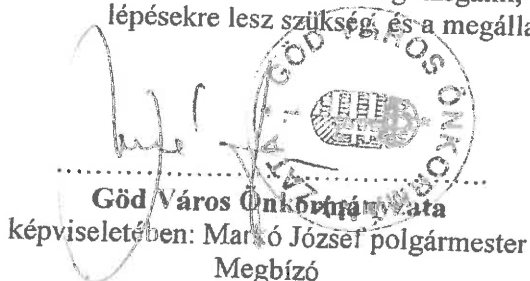 lépésekre lesz szükség, és a megálla
GÖD VÁROS ÖNKORMÁNYZATA 1.
Göd Város Önkormányzata
képviseletében: Markó József polgármester
Megbízó